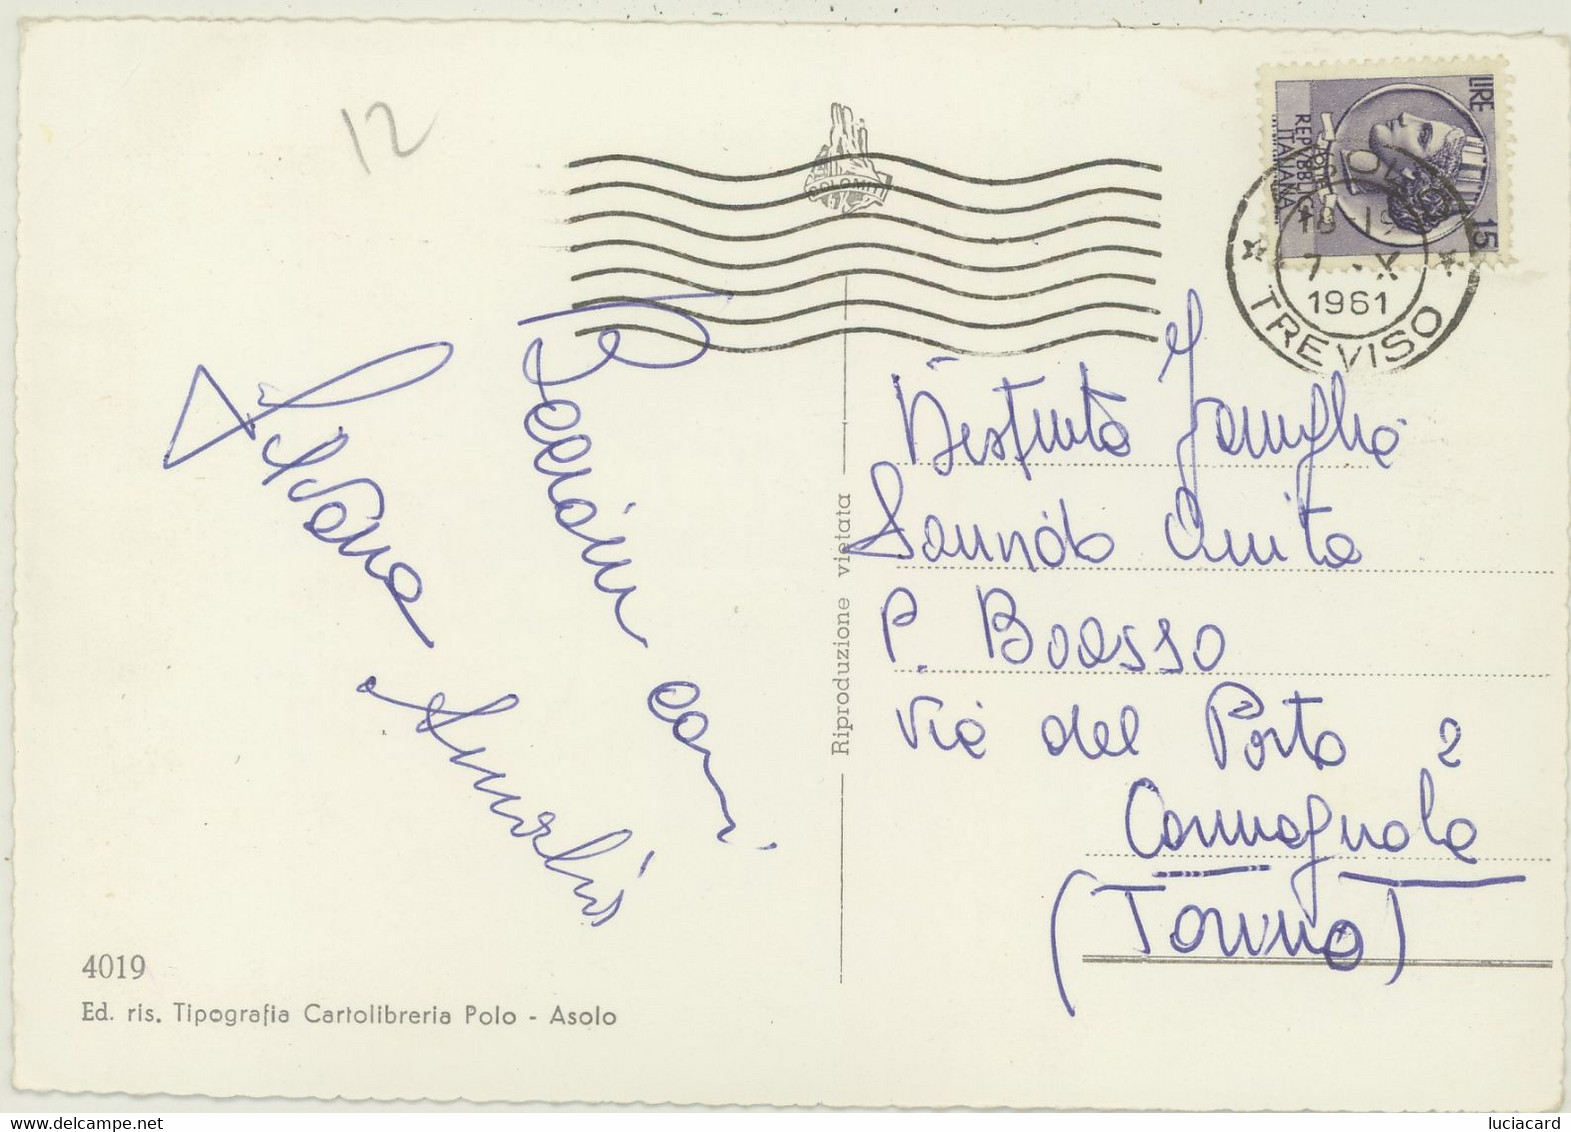 12
DOLOMITI
LIRE
15
REPUBBLICA
ITALIANA
18-19
7 · X
1961
* TREVISO *
Bacioni cari
Silvana
Distinta Famiglia
Sannda Anita
P. Boasso
Via del Porto 2
Carmagnola
(Torino)
Riproduzione vietata
4019
Ed. ris. Tipografia Cartolibreria Polo - Asolo
delcampe.net
luciacard